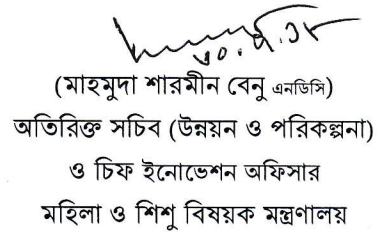 (মাহমুদা শারমীন বেনু এনডিসি)
অতিরিক্ত সচিব (উন্নয়ন ও পরিকল্পনা)
ও চিফ ইনোভেশন অফিসার
মহিলা ও শিশু বিষয়ক মন্ত্রণালয়